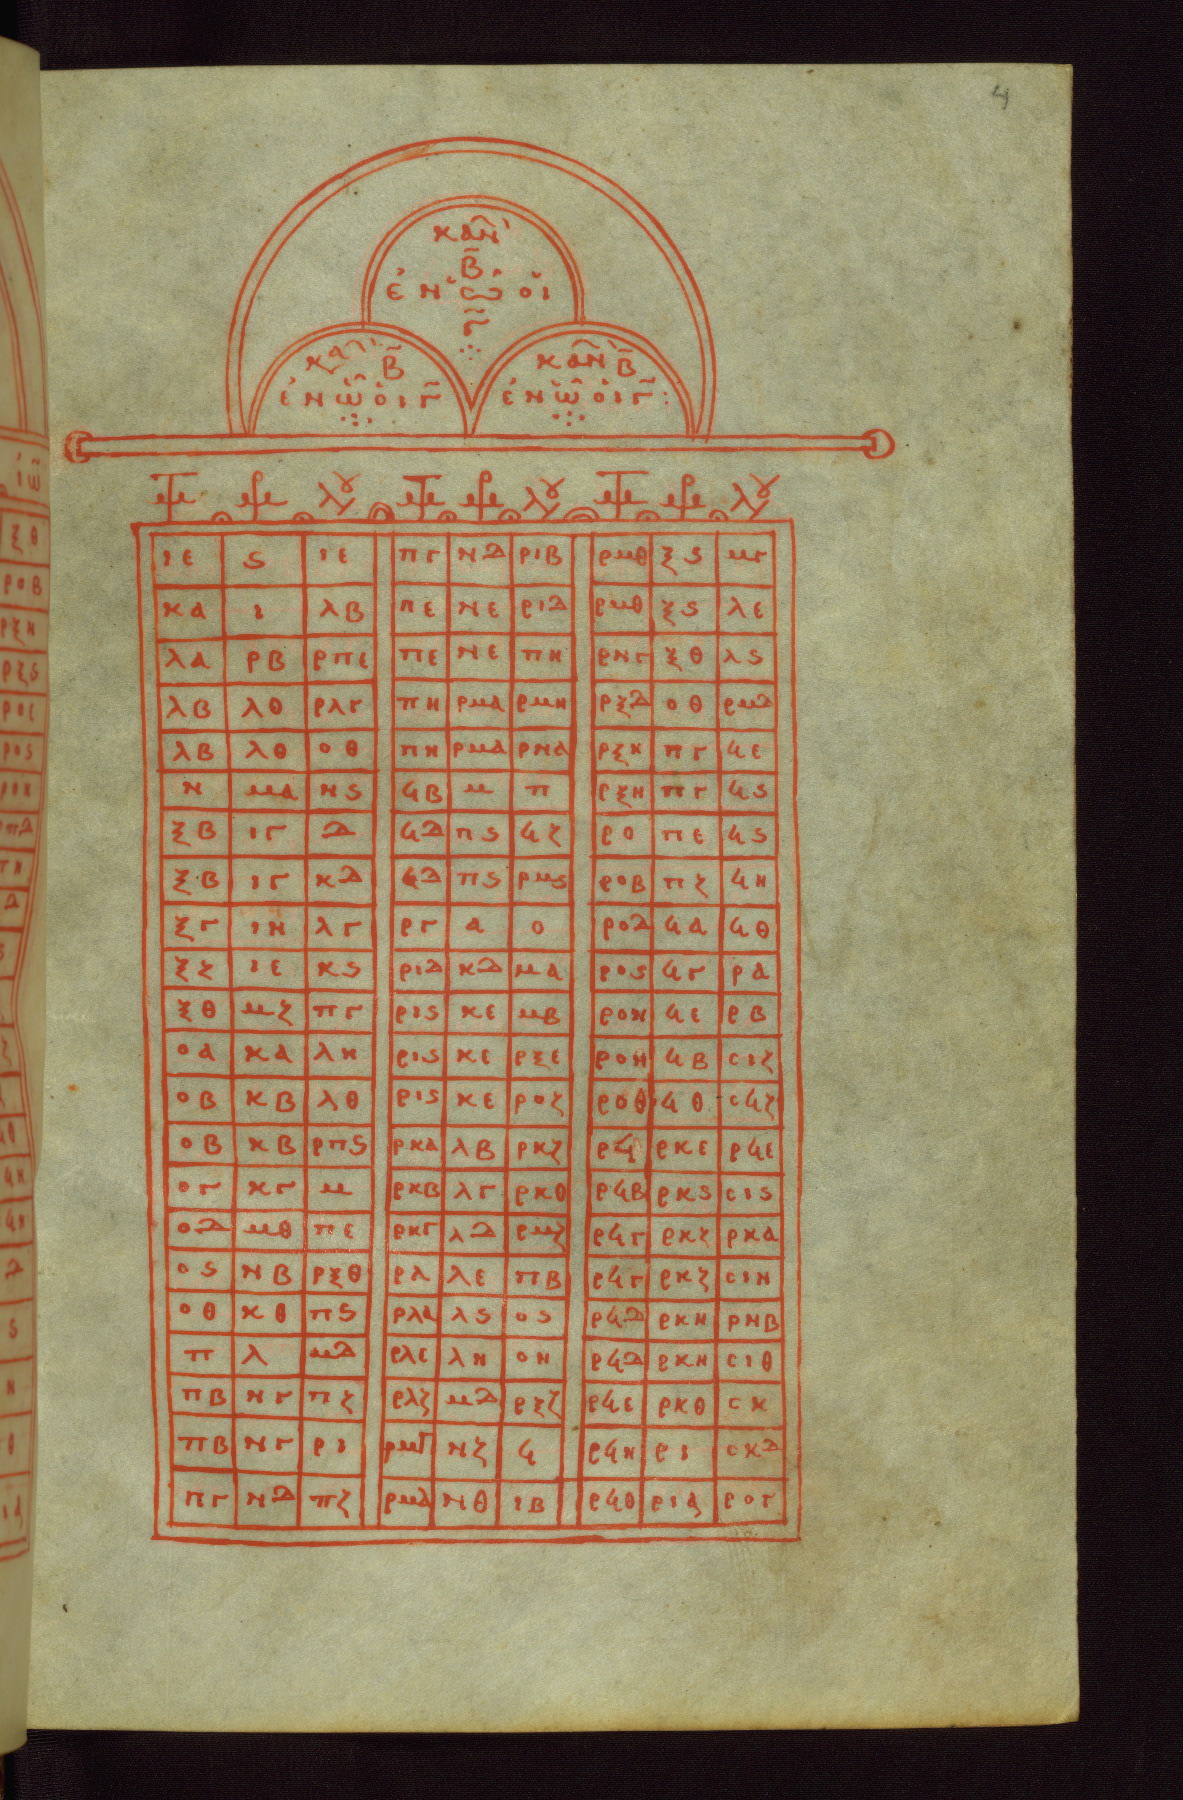 4
καν
Β
ἐν ᾧ οἱ
Γ
καν Β
ἐν ᾧ οἱ Γ
καν Β
ἐν ᾧ οἱ Γ:
ιε ϛ ιε πγ νδ ριβ ρμθ ξϛ μγ
κα ι λβ πε νε ριδ ρμθ ξϛ λε
λα ρβ ρπε πε νε πη ρνγ ξθ λϛ
λβ λθ ρλγ πη ρμα ρμη ρξδ οθ ρμδ
λβ λθ οθ πη ρμα ρνα ρξη πγ ϟε
ν μα νϛ ϟβ μ π ρξη πγ ϟϛ
ξβ ιγ δ ϟδ πϛ ϟζ ρο πε ϟϛ
ξβ ιγ κδ ϟδ πϛ ρμϛ ροβ πζ ϟη
ξγ ιη λγ ργ α ο ροδ ϟα ϟθ
ξζ ιε κϛ ριδ κδ μα ροϛ ϟγ ρα
ξθ μζ πγ ριϛ κε μβ ροη ϟε ρβ
οα κα λη ριϛ κε ρξε ροη ϟβ σιζ
οβ κβ λθ ριϛ κε ροζ ροθ ϟθ σϟζ
οβ κβ ρπϛ ρκα λβ ρκζ ρϟ ρκε ρϟε
ογ κγ μ ρκβ λγ ρκθ ρϟβ ρκϛ σιϛ
οδ μθ πε ρκγ λδ ρμζ ρϟγ ρκζ ρκα
οϛ νβ ρξθ ρλ λε πβ ρϟγ ρκζ σιη
οθ κθ πϛ ρλα λϛ οϛ ρϟδ ρκη ρνβ
π λ μδ ρλε λη οη ρϟδ ρκη σιθ
πβ νγ πζ ρλζ μδ ρξζ ρϟε ρκθ σκ
πβ νγ ρι ρμγ νζ ϟ ρϟη ρι σκδ
πγ νδ πζ ρμδ νθ ιβ ρϟθ ρια ρογ